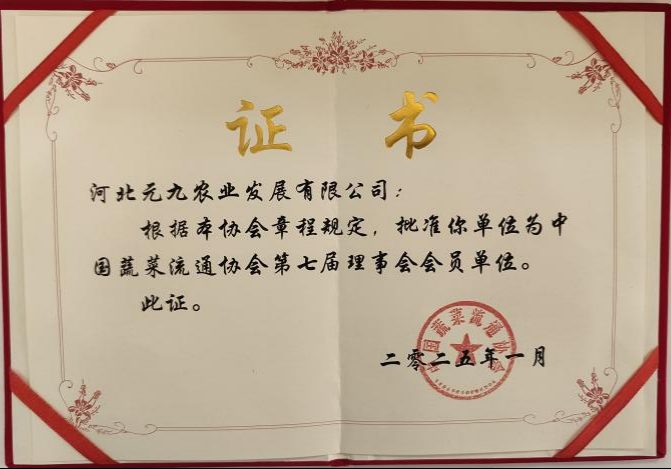 证书
河北元九农业发展有限公司：
根据本协会章程规定，批准你单位为中
国蔬菜流通协会第七届理事会会员单位。
此证。
中国蔬菜流通协会
二零二五年一月